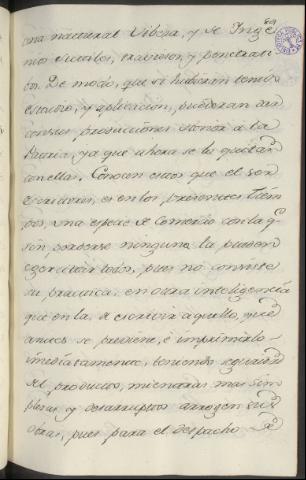 una natural Viveza, y de Inge-
nios
De modo, que si hubieran tenido
estudio, y aplicacion, pudieran
con sus producciones honor a la
Patria, ya que ahora se lo quitan
con ellas. Conocen estos que el ser
Escritores, es en los presentes tiem-
pos, una especie de Comercio con la q.e
sin perderse ninguno la pueden
egercitar todos, pues no consiste
su practica en otra inteligencia
que en la de escrivir aquello, que
antes se previene, è imprimirlo
imediatamente, teniendo
del producto, mientras mas sim-
ples y desarruptos arrogen sus
obras, pues para el despacho de